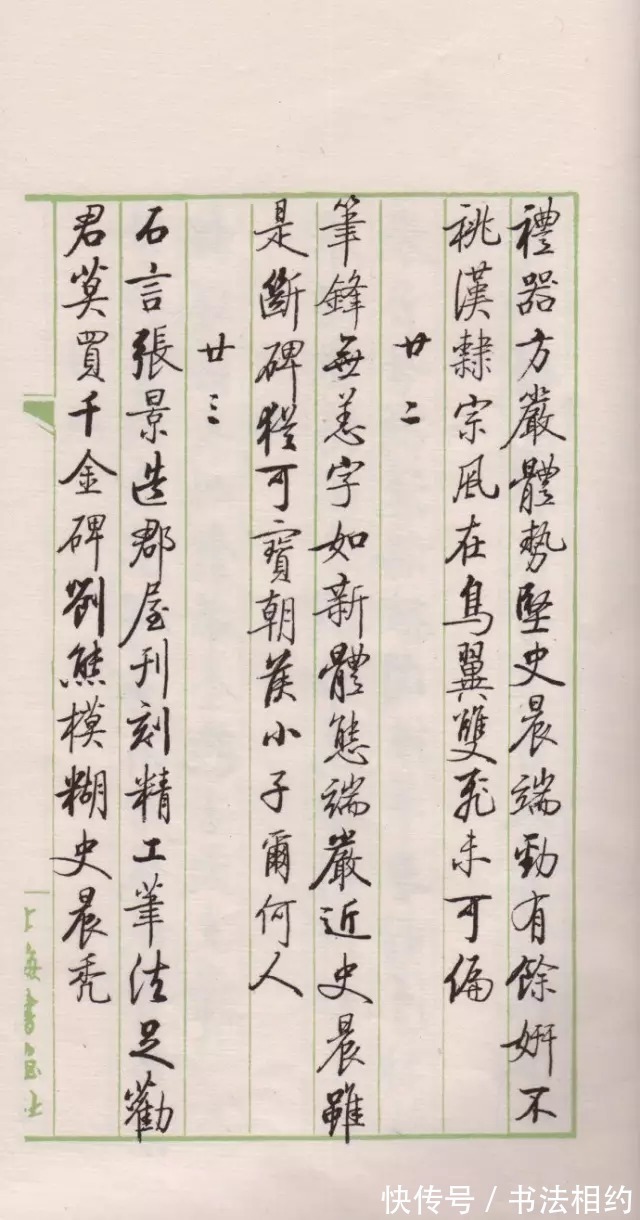 禮器方嚴體勢堅史晨端勁有餘妍不
祧漢隸宗風在鳥翼雙飛未可偏
廿二
筆鋒無恙字如新體態端嚴近史晨雖
是斷碑猶可寶朝侯小子爾何人
廿三
石言張景造郡屋刊刻精工筆法足勸
君莫買千金碑劉熊模糊史晨禿
上海書畫社
快传号/书法相约